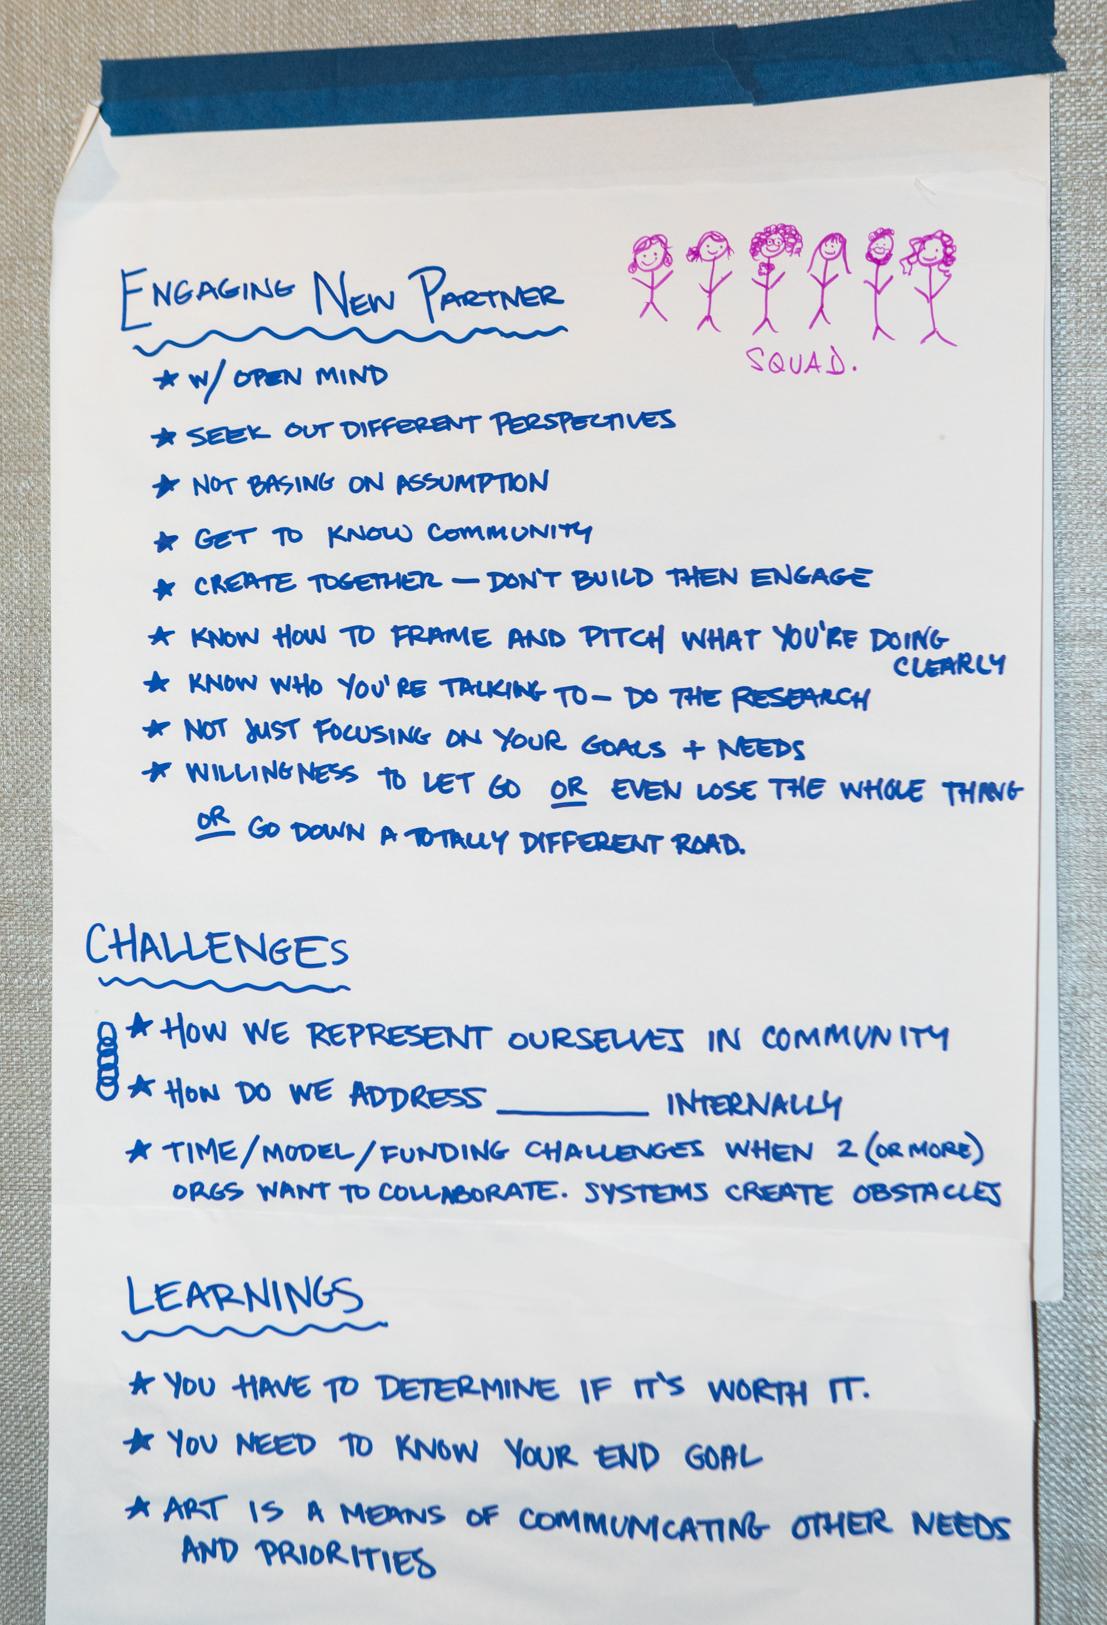 ENGAGING NEW PARTNER
SQUAD.
★ W/ OPEN MIND
★ SEEK OUT DIFFERENT PERSPECTIVES
★ NOT BASING ON ASSUMPTION
★ GET TO KNOW COMMUNITY
★ CREATE TOGETHER — DON'T BUILD THEN ENGAGE
★ KNOW HOW TO FRAME AND PITCH WHAT YOU'RE DOING
CLEARLY
★ KNOW WHO YOU'RE TALKING TO — DO THE RESEARCH
★ NOT JUST FOCUSING ON YOUR GOALS + NEEDS
★ WILLINGNESS TO LET GO OR EVEN LOSE THE WHOLE THING
OR GO DOWN A TOTALLY DIFFERENT ROAD.
CHALLENGES
★ HOW WE REPRESENT OURSELVES IN COMMUNITY
★ HOW DO WE ADDRESS ________ INTERNALLY
★ TIME/MODEL/FUNDING CHALLENGES WHEN 2 (OR MORE)
ORGS WANT TO COLLABORATE. SYSTEMS CREATE OBSTACLES
LEARNINGS
★ YOU HAVE TO DETERMINE IF IT'S WORTH IT.
★ YOU NEED TO KNOW YOUR END GOAL
★ ART IS A MEANS OF COMMUNICATING OTHER NEEDS
AND PRIORITIES